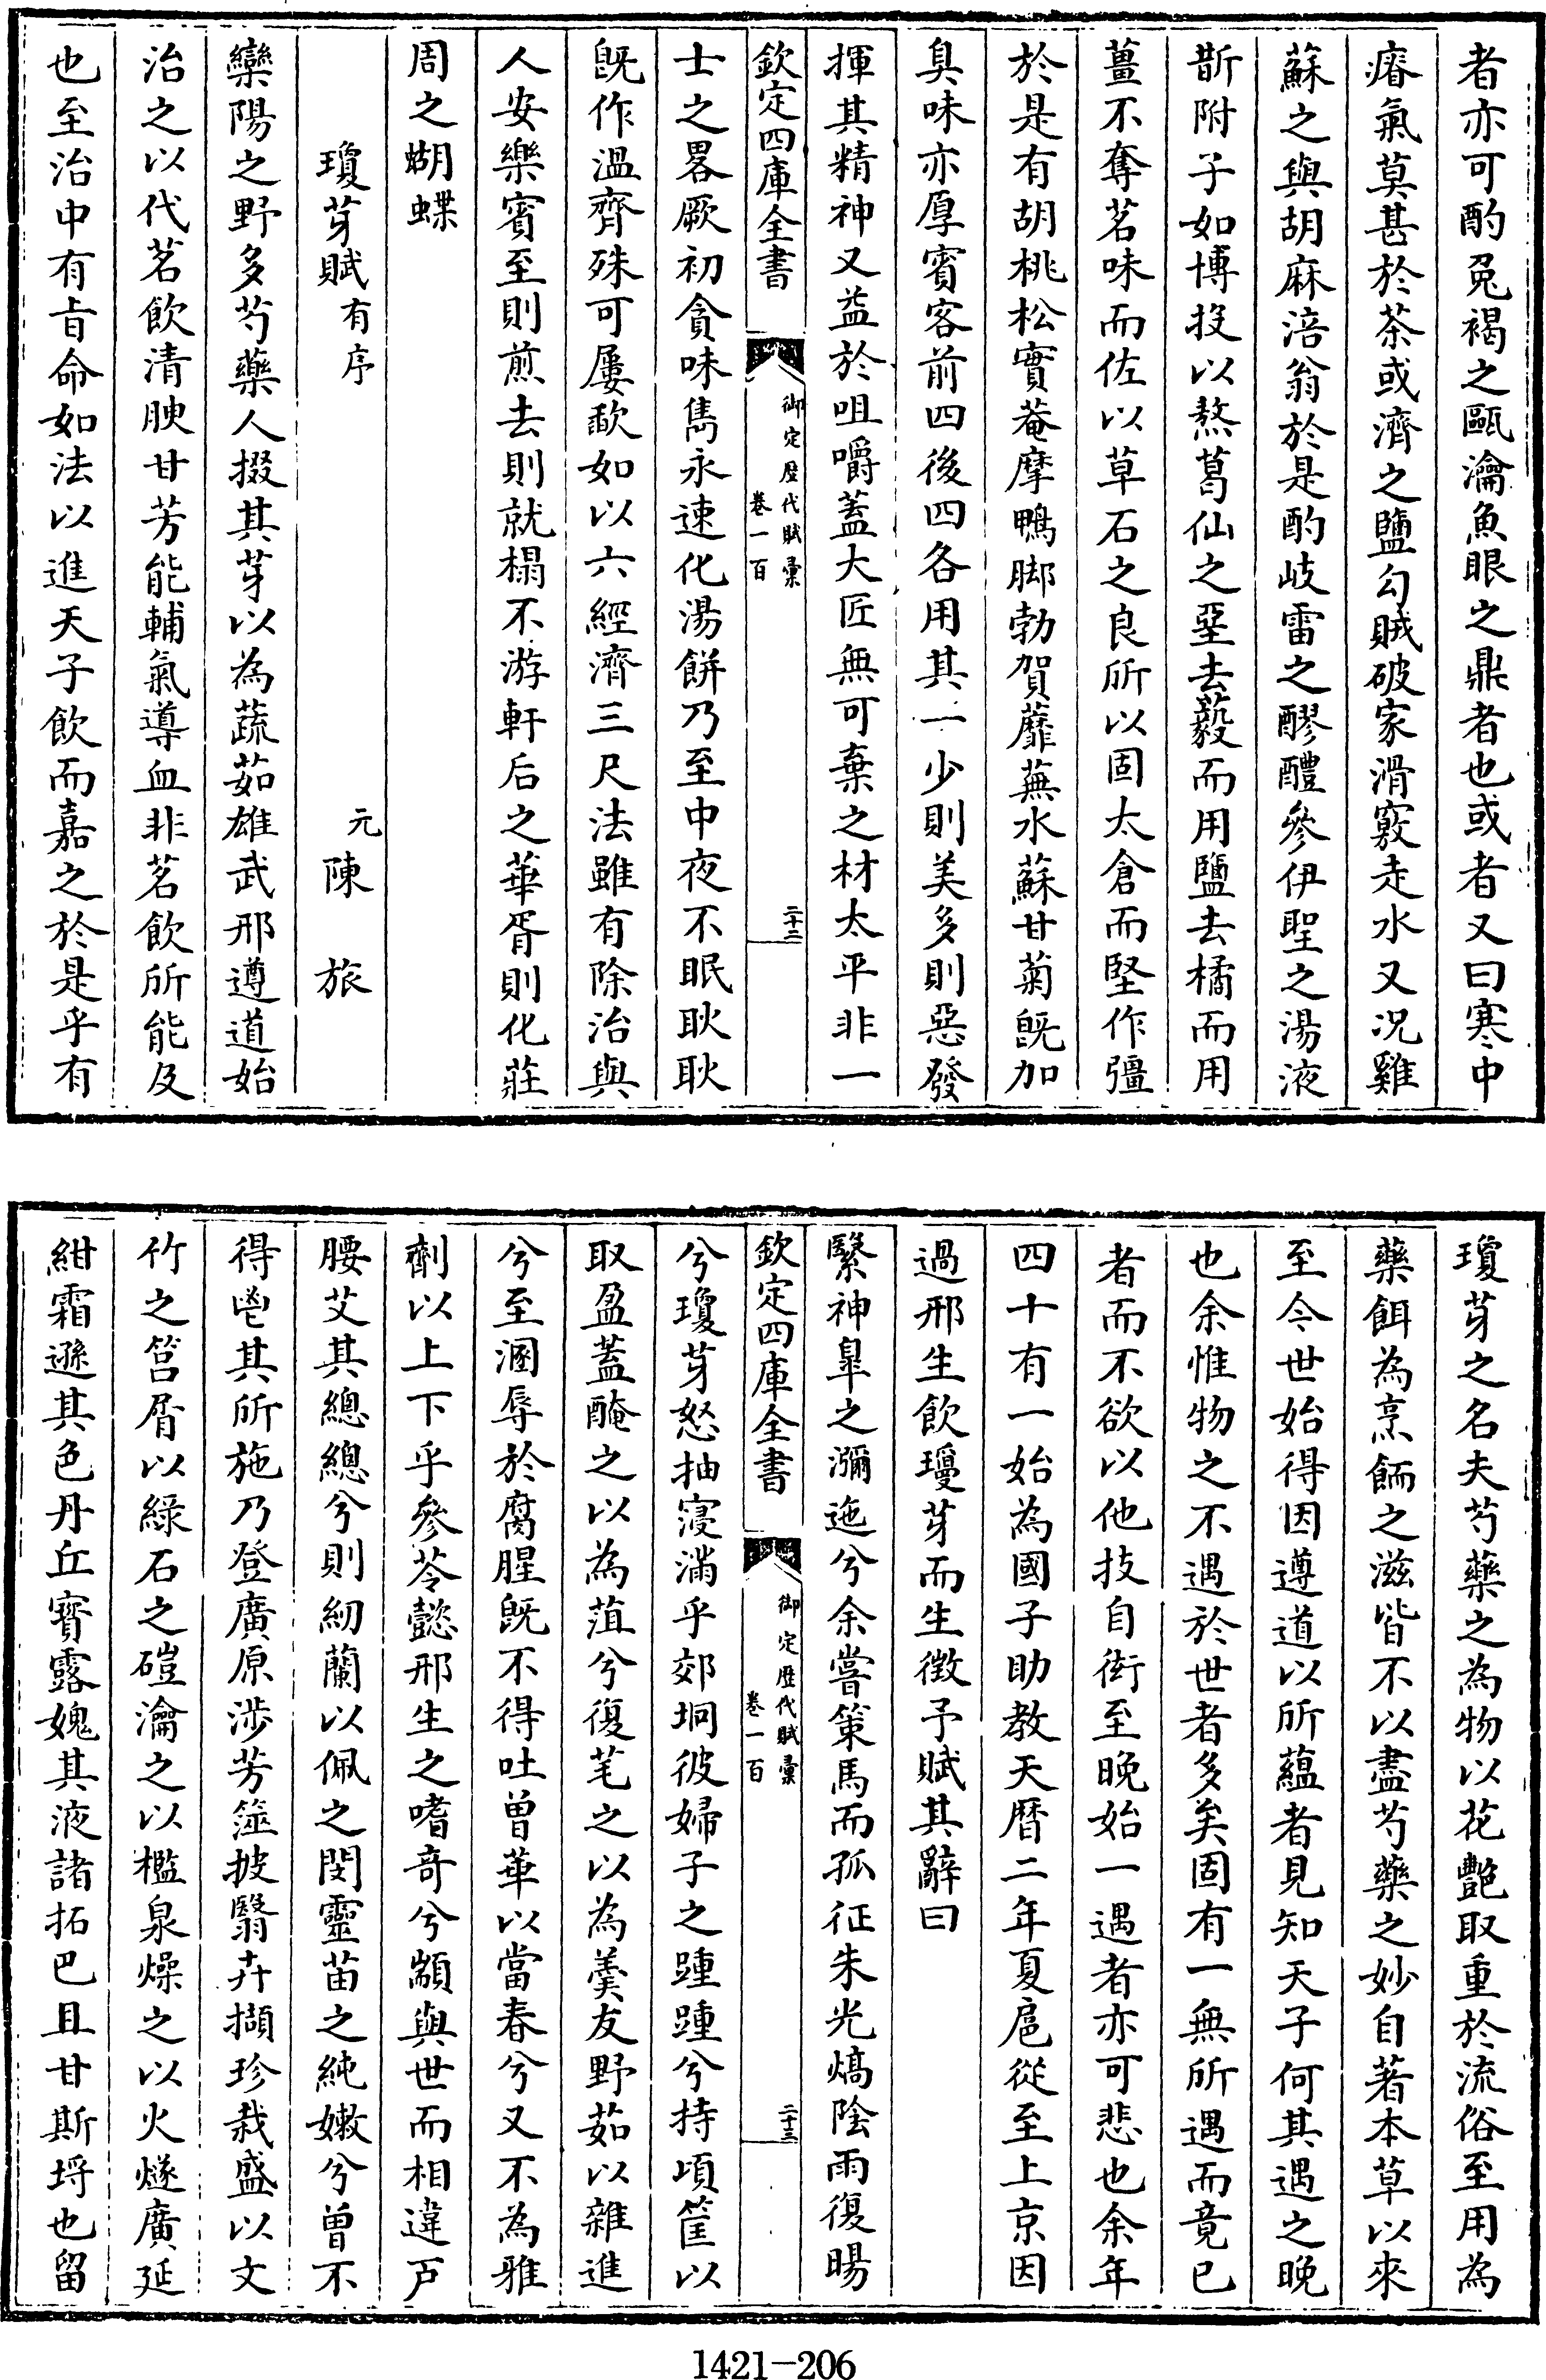 者亦可酌兎褐之甌瀹魚眼之鼎者也或者又曰寒中
瘠氣莫甚於茶或濟之鹽勾賊破家滑竅走水又况雞
蘇之與胡麻涪翁於是酌岐雷之醪醴參伊聖之湯液
斮附子如博投以熬葛仙之堊去藙而用鹽去橘而用
薑不奪茗味而佐以草石之良所以固太倉而堅作彊
於是有胡桃松實菴摩鴨脚勃賀蘼蕪水蘇甘菊旣加
臭味亦厚賓客前四後四各用其一少則美多則惡發
揮其精神又益於咀嚼蓋大匠無可棄之材太平非一
欽定四庫全書
御定歴代賦彙
卷一百
二十二
士之畧厥初貪味雋永速化湯餅乃至中夜不眠耿耿
旣作溫齊殊可屢歃如以六經濟三尺法雖有除治與
人安樂賓至則煎去則就榻不游軒后之華胥則化莊
周之蝴蝶
瓊芽賦有序
元陳旅
欒陽之野多芍藥人掇其芽以為蔬茹雄武邢遵道始
治之以代茗飲清腴甘芳能輔氣導血非茗飲所能及
也至治中有㫖命如法以進天子飲而嘉之於是乎有
瓊芽之名夫芍藥之為物以花艶取重於流俗至用為
藥餌為烹飪之滋皆不以盡芍藥之妙自著本草以來
至今世始得因遵道以所蘊者見知天子何其遇之晚
也余惟物之不遇於世者多矣固有一無所遇而竟已
者而不欲以他技自衒至晚始一遇者亦可悲也余年
四十有一始為國子助教天曆二年夏扈從至上京因
過邢生飲瓊芽而生徴予賦其辭曰
繄神臯之瀰迤兮余嘗策馬而孤征朱光熇陰雨復暘
欽定四庫全書
御定歴代賦彙
卷一百
二十三
兮瓊芽怒抽寖滿乎郊坰彼婦子之踵踵兮持頃筐以
取盈蓋醃之以為菹兮復芼之以為羹友野茹以雜進
兮至溷辱於腐腥旣不得吐曽華以當春兮又不為雅
劑以上下乎參苓懿邢生之嗜竒兮顓與世而相違戸
腰艾其總總兮則紉蘭以佩之閔靈苗之純嫰兮曽不
得鬯其所施乃登廣原涉芳筵披翳卉擷珍栽盛以文
竹之筥屑以綠石之磑瀹之以檻泉燥之以火燧廣延
紺霜遜其色丹丘寳露媿其液諸拓巴且甘斯埒也留
1421-206